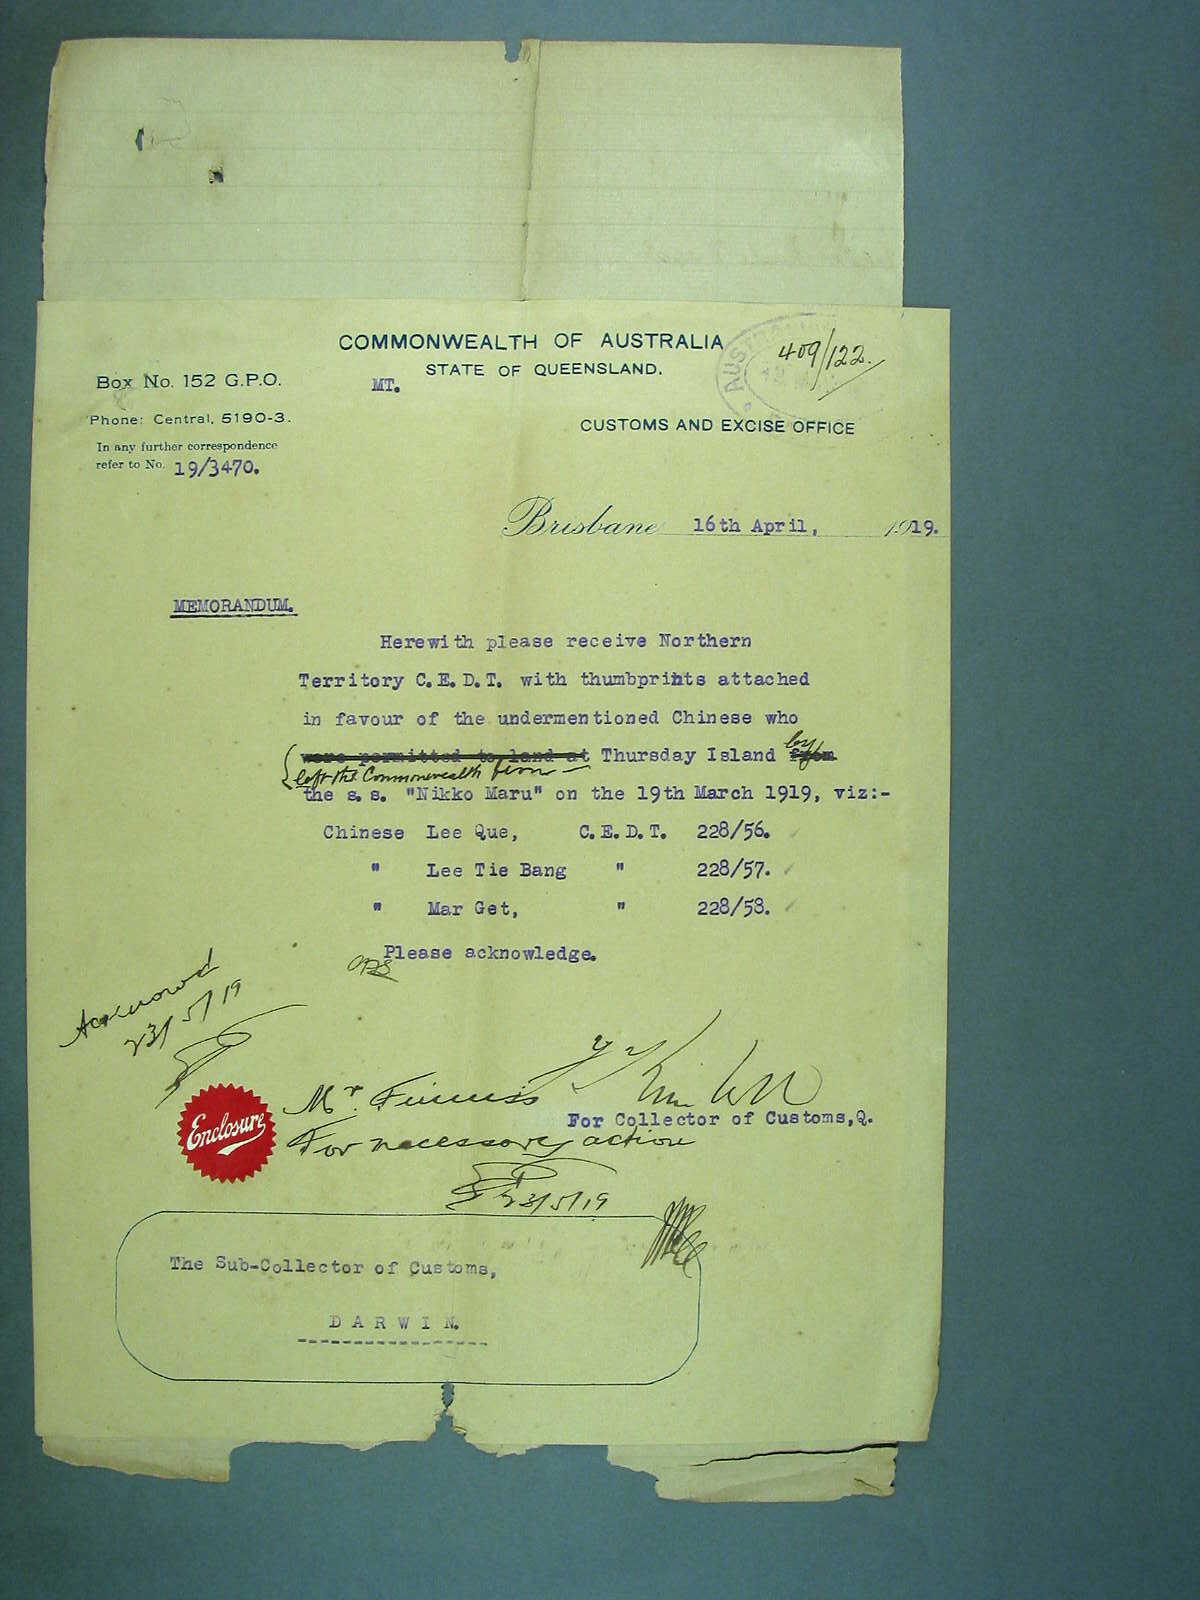 COMMONWEALTH OF AUSTRALIA
STATE OF QUEENSLAND.
409/122.
AUSTRALIA
Box No. 152 G.P.O.
MT.
Phone: Central, 5190-3.
CUSTOMS AND EXCISE OFFICE
In any further correspondence
refer to No. 19/3470.
Brisbane 16th April, 1919.
MEMORANDUM.
Herewith please receive Northern
Territory C.E.D.T. with thumbprints attached
in favour of the undermentioned Chinese who
were permitted to land at Thursday Island from by
left the Commonwealth from
the s.s. "Nikko Maru" on the 19th March 1919, viz:-
Chinese Lee Que, C.E.D.T. 228/56.
" Lee Tie Bang " 228/57.
" Mar Get, " 228/58.
Please acknowledge.
23/5/19
Enclosure
Mr. Finniss
For Collector of Customs,Q.
For necessary action
23/5/19
The Sub-Collector of Customs,
DARWIN.